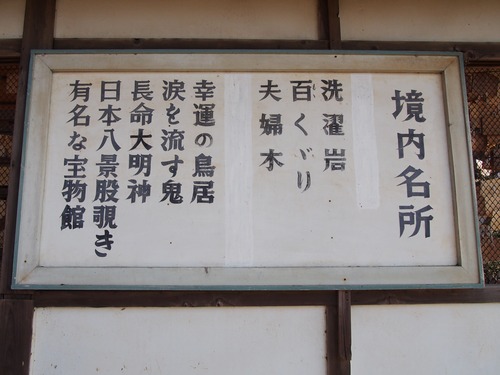 境内名所
洗濯岩
百くゞり
夫婦木
幸運の鳥居
涙を流す鬼
長命大明神
日本八景股覗き
有名な宝物館